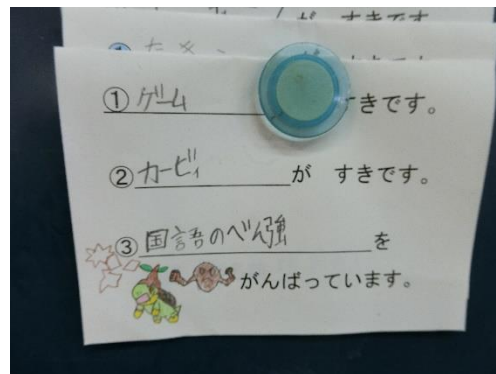 ① ゲーム きです。
② カービィ が すきです。
③ 国語のべん強 を
がんばっています。